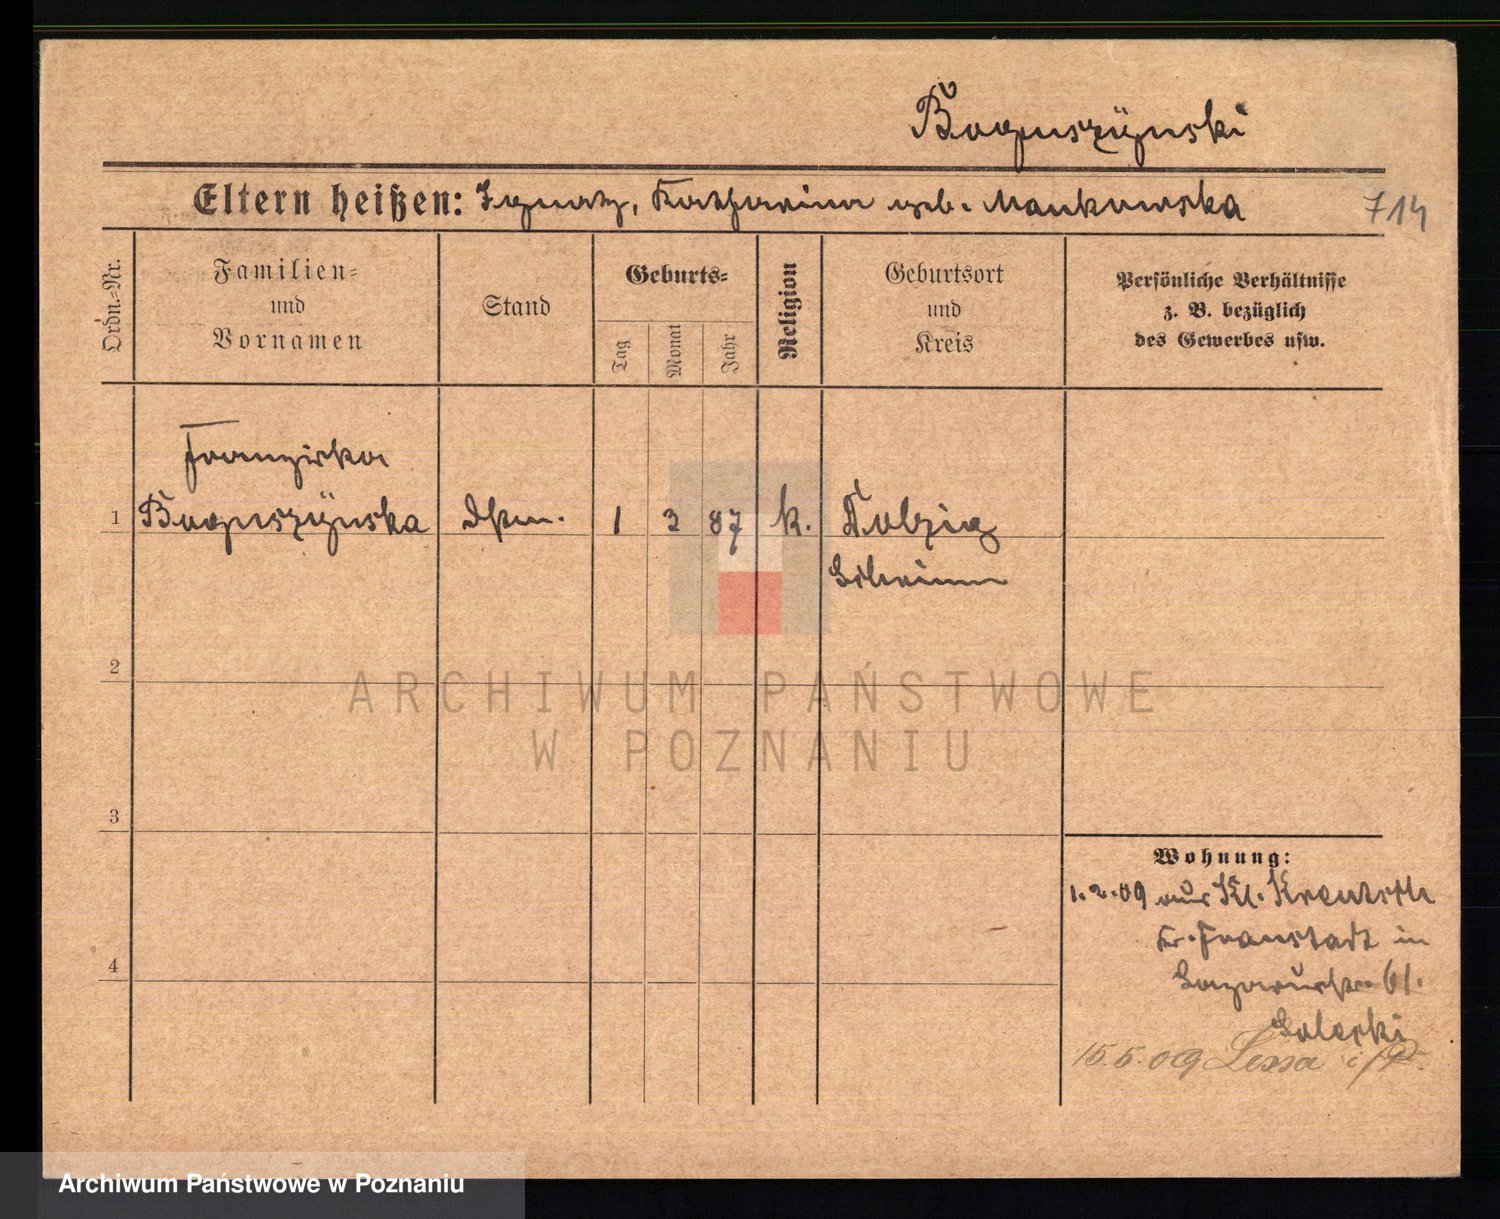 Boguszÿnski
Eltern heißen: Ignatz, Katharina geb. Mankowska
714
Ordn.-Nr.
Familien-
und
Vornamen
Stand
Geburts-
Tag
Monat
Jahr
Religion
Geburtsort
und
Kreis
Persönliche Verhältnisse
z. B. bezüglich
des Gewerbes usw.
Franziska
1 Boguszÿnska Dstm. 1 3 87 k. Dolzig
Schrimm
2
3
4
ARCHIWUM PAŃSTWOWE
W POZNANIU
Wohnung:
1.2.09 aus Kl. Kreutsch
Kr. Fraustadt in
Lazarusstr. 61.
15.5.09 Lissa i/P.
Archiwum Państwowe w Poznaniu